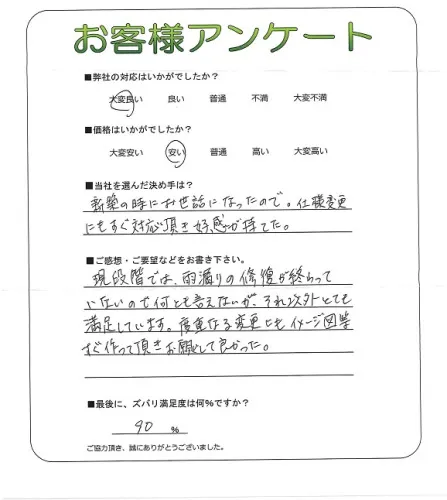 お客様アンケート
■弊社の対応はいかがでしたか?
大変良い 良い 普通 不満 大変不満
■価格はいかがでしたか?
大変安い 安い 普通 高い 大変高い
■当社を選んだ決め手は?
新築の時にお世話になったので。仕様変更
にもすぐ対応頂き好感が持てた。
■ご感想・ご要望などをお書き下さい。
現段階では、雨漏りの修復が終らって
いないので何とも言えないが、それ以外とても
満足しています。度重なる変更にもイメージ図等
すぐ作って頂きお願いして良かった。
■最後に、ズバリ満足度は何%ですか?
90 %
ご協力頂き、誠にありがとうございました。